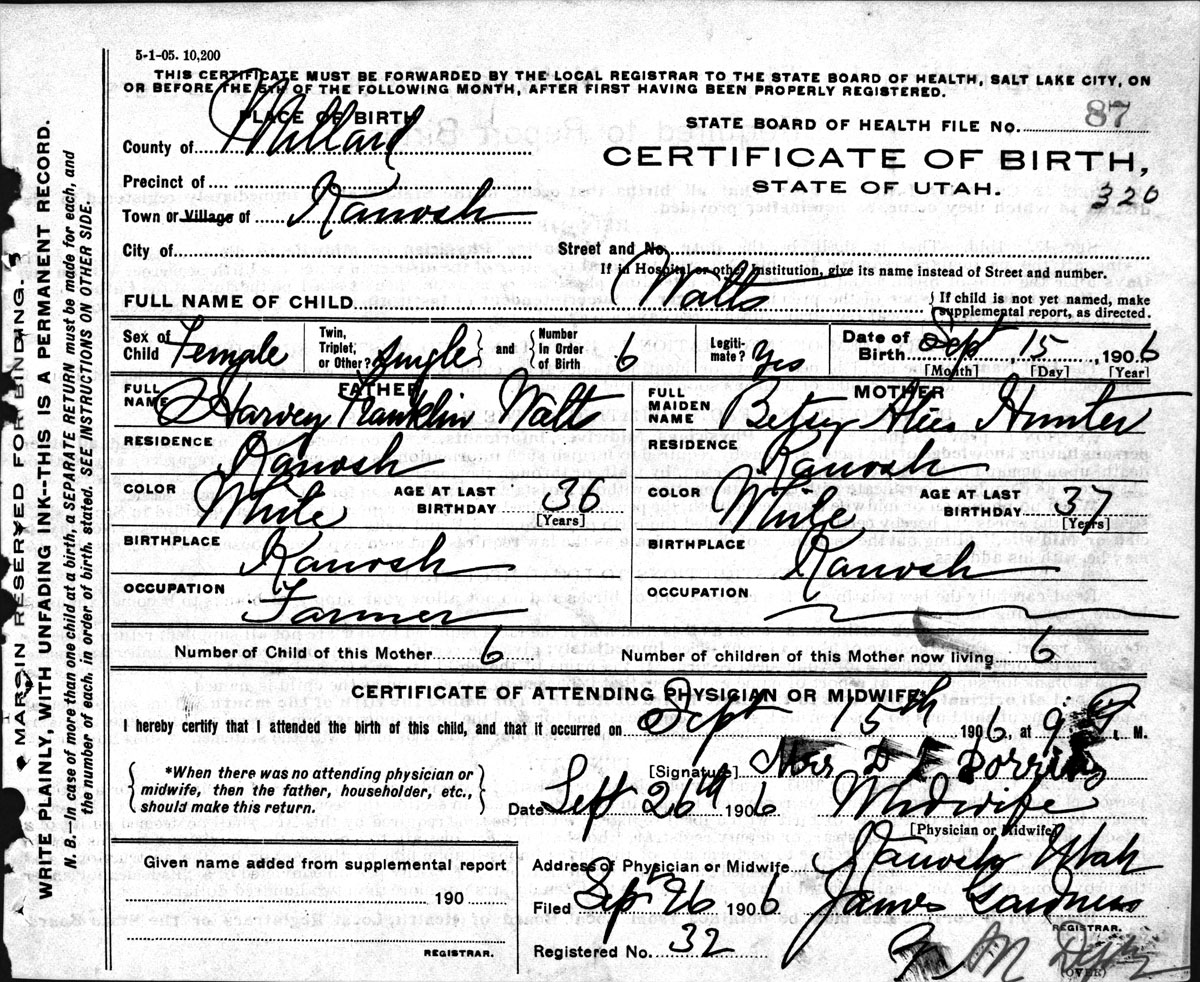 5-1-05. 10,200
THIS CERTIFICATE MUST BE FORWARDED BY THE LOCAL REGISTRAR TO THE STATE BOARD OF HEALTH, SALT LAKE CITY, ON
OR BEFORE THE 5TH OF THE FOLLOWING MONTH, AFTER FIRST HAVING BEEN PROPERLY REGISTERED.
PLACE OF BIRTH
STATE BOARD OF HEALTH FILE NO. 87
County of Millard
CERTIFICATE OF BIRTH,
STATE OF UTAH.
320
Precinct of
Town or Village of Kanosh
City of Street and No.
If in Hospital or other Institution, give its name instead of Street and number.
FULL NAME OF CHILD Watts
{If child is not yet named, make
supplemental report, as directed.
Sex of Child Female
Twin, Triplet, or Other? Single } and { Number in Order of Birth 6
Legiti-mate? Yes
Date of Birth Sept 15, 1906
[Month] [Day] [Year]
FATHER
FULL NAME Harvey Franklin Watt
RESIDENCE Kanosh
COLOR White AGE AT LAST BIRTHDAY 36
[Years]
BIRTHPLACE Kanosh
OCCUPATION Farmer
MOTHER
FULL MAIDEN NAME Betsy Alice Hunter
RESIDENCE Kanosh
COLOR White AGE AT LAST BIRTHDAY 37
[Years]
BIRTHPLACE Kanosh
OCCUPATION
Number of Child of this Mother 6 Number of children of this Mother now living 6
CERTIFICATE OF ATTENDING PHYSICIAN OR MIDWIFE
I hereby certify that I attended the birth of this child, and that it occurred on Sept 15th 1906, at 9 P. M.
{*When there was no attending physician or
midwife, then the father, householder, etc.,
should make this return.}
[Signature] Mrs D
Date Sept 26th 1906 Midwife
[Physician or Midwife]
Given name added from supplemental report
190
REGISTRAR.
Address of Physician or Midwife Kanosh Utah
Filed Sept 26 1906 James Gardner
REGISTRAR.
Registered No. 32
(OVER)
MARGIN RESERVED FOR BINDING.
WRITE PLAINLY, WITH UNFADING INK--THIS IS A PERMANENT RECORD.
N. B. In case of more than one child at a birth, a SEPARATE RETURN must be made for each, and
the number of each, in order of birth, stated. SEE INSTRUCTIONS ON OTHER SIDE.